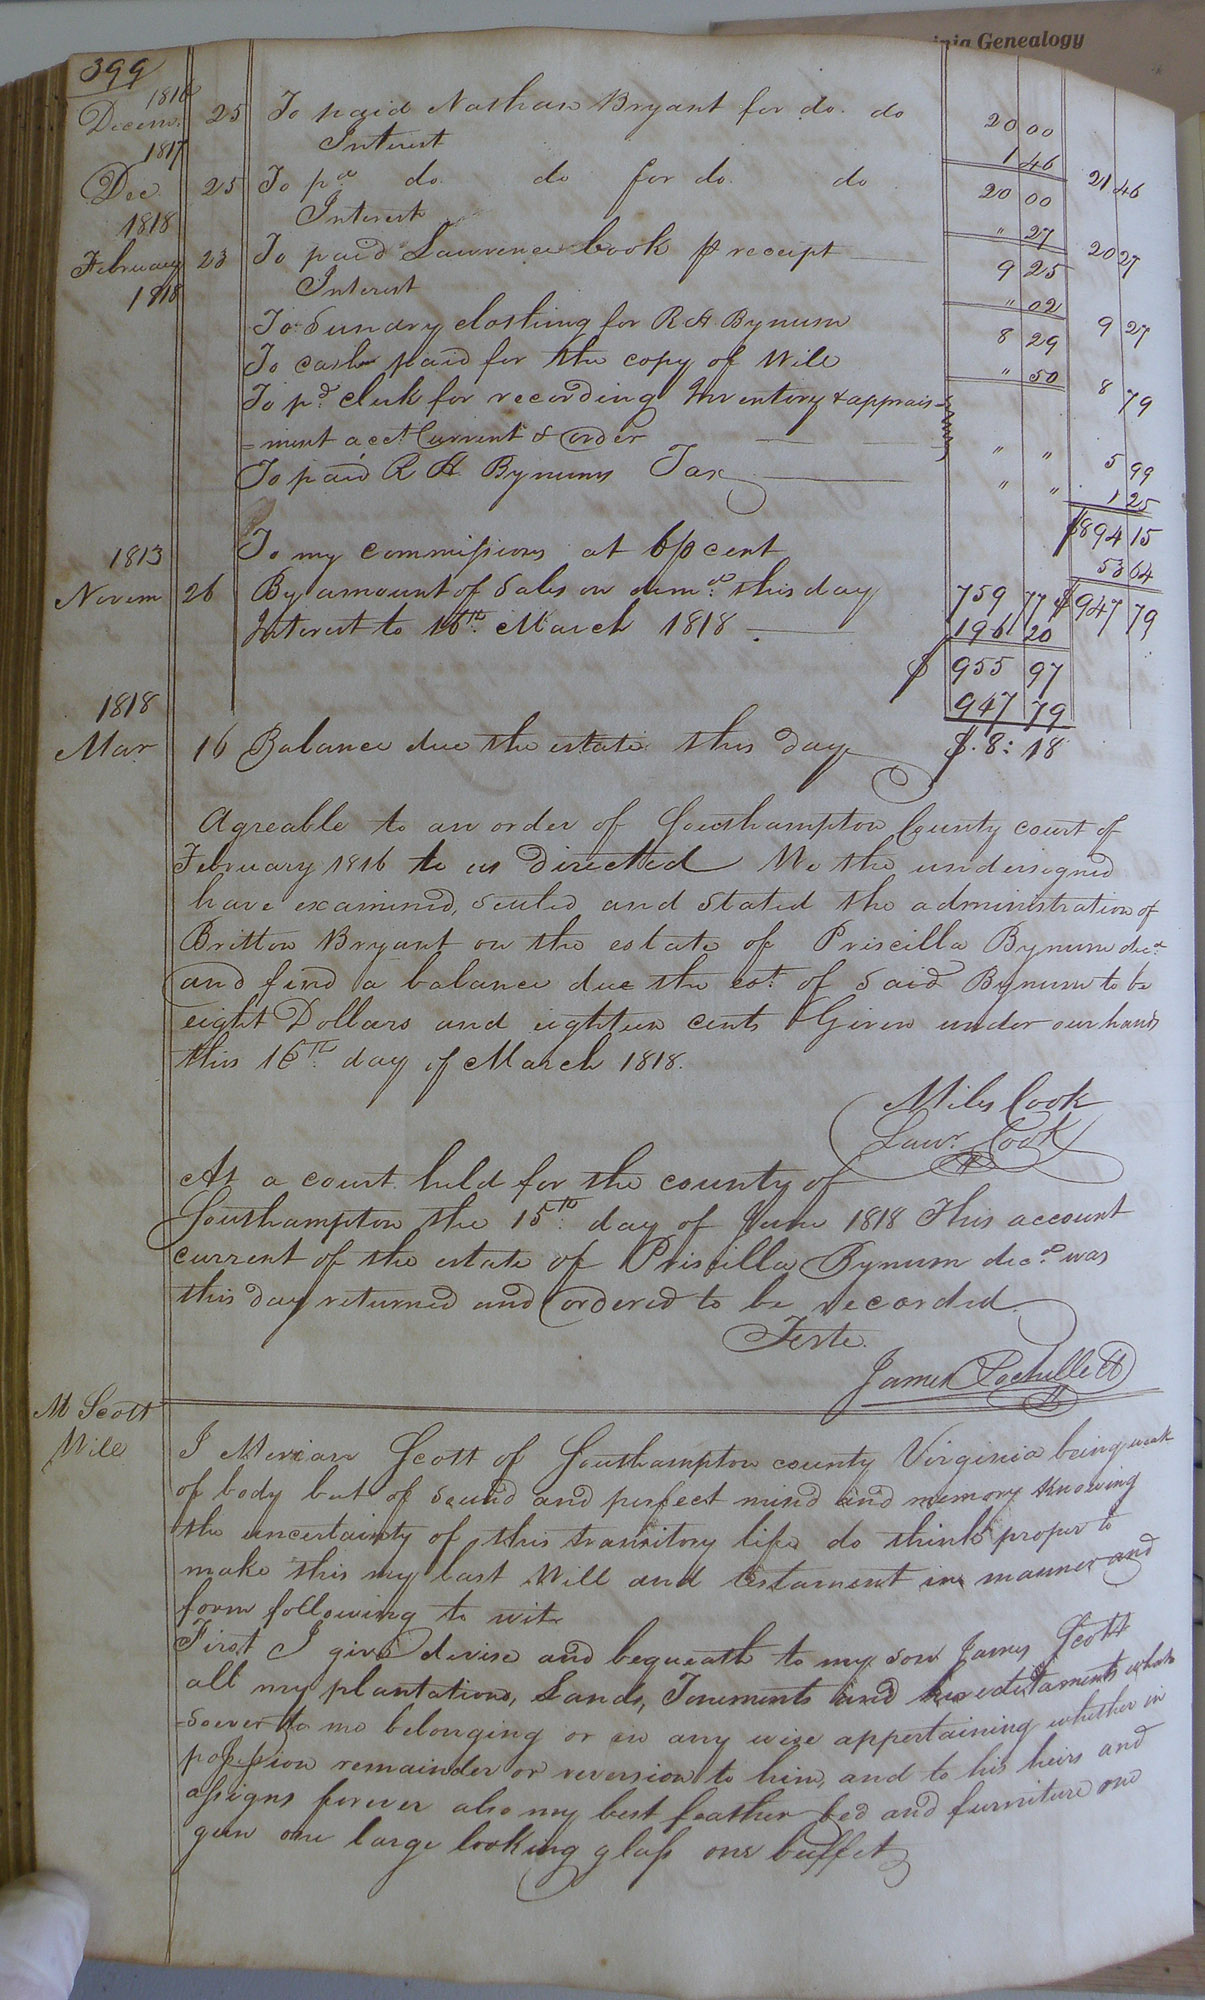 inia Genealogy
399
1816
Decem. 25 To paid Nathan Bryant for do. do 20 00
Interest 1 46 21 46
1817
Dec 25 To pd do. do for do. do 20 00
Interest " 27 20 27
1818
February 23 To paid Lawrence book p receipt 9 25
Interest " 02 9 27
1818
To Sundry clothing for R H Bynum 8 29
To cash paid for the copy of Will " 50 8 79
To pd. clerk for recording Inventory & apprais=
=ment acct. Current & Order " " 5 99
To paid R H Bynums Tax " " 1 25
$894 15
To my commissions at 6 p cent 53 64
$947 79
1813
Novem 26 By amount of Sales on demd. this day 759 77
Interest to 16th. March 1818 196 20
$ 955 97
947 79
1818
Mar 16 Balance due the estate this day $. 8: 18
Agreable to an order of Southampton County court of
February 1816 to us Directted We the undersigned
have examined, settled and Stated the administration of
Britton Bryant on the estate of Priscilla Bynum decd.
and find a balance due the est. of Said Bynum to be
eight Dollars and eighteen cents Given under our hands
this 16th. day of March 1818.
Miles Cook
Lawr. Cook
At a court held for the county of
Southampton the 15th. day of June 1818 This account
current of the estate of Priscilla Bynum decd. was
this day returned and ordered to be recorded.
Teste.
James Rochelle
M Scott
Will
I Scott of Southampton county Virginia being weak
of body but of sound and perfect mind and memory knowing
the uncertainty of this transitory life do think proper to
make this my last Will and testament in manner and
form following to wit
First I give devise and bequeath to my son James Scott
all my plantations, Lands, Tenements and hereditaments what=
=soever to me belonging or in any wise appertaining whether in
possession remainder or reversion to him, and to his heirs and
assigns forever also my best feather bed and furniture one
gun one large looking glass one buffet